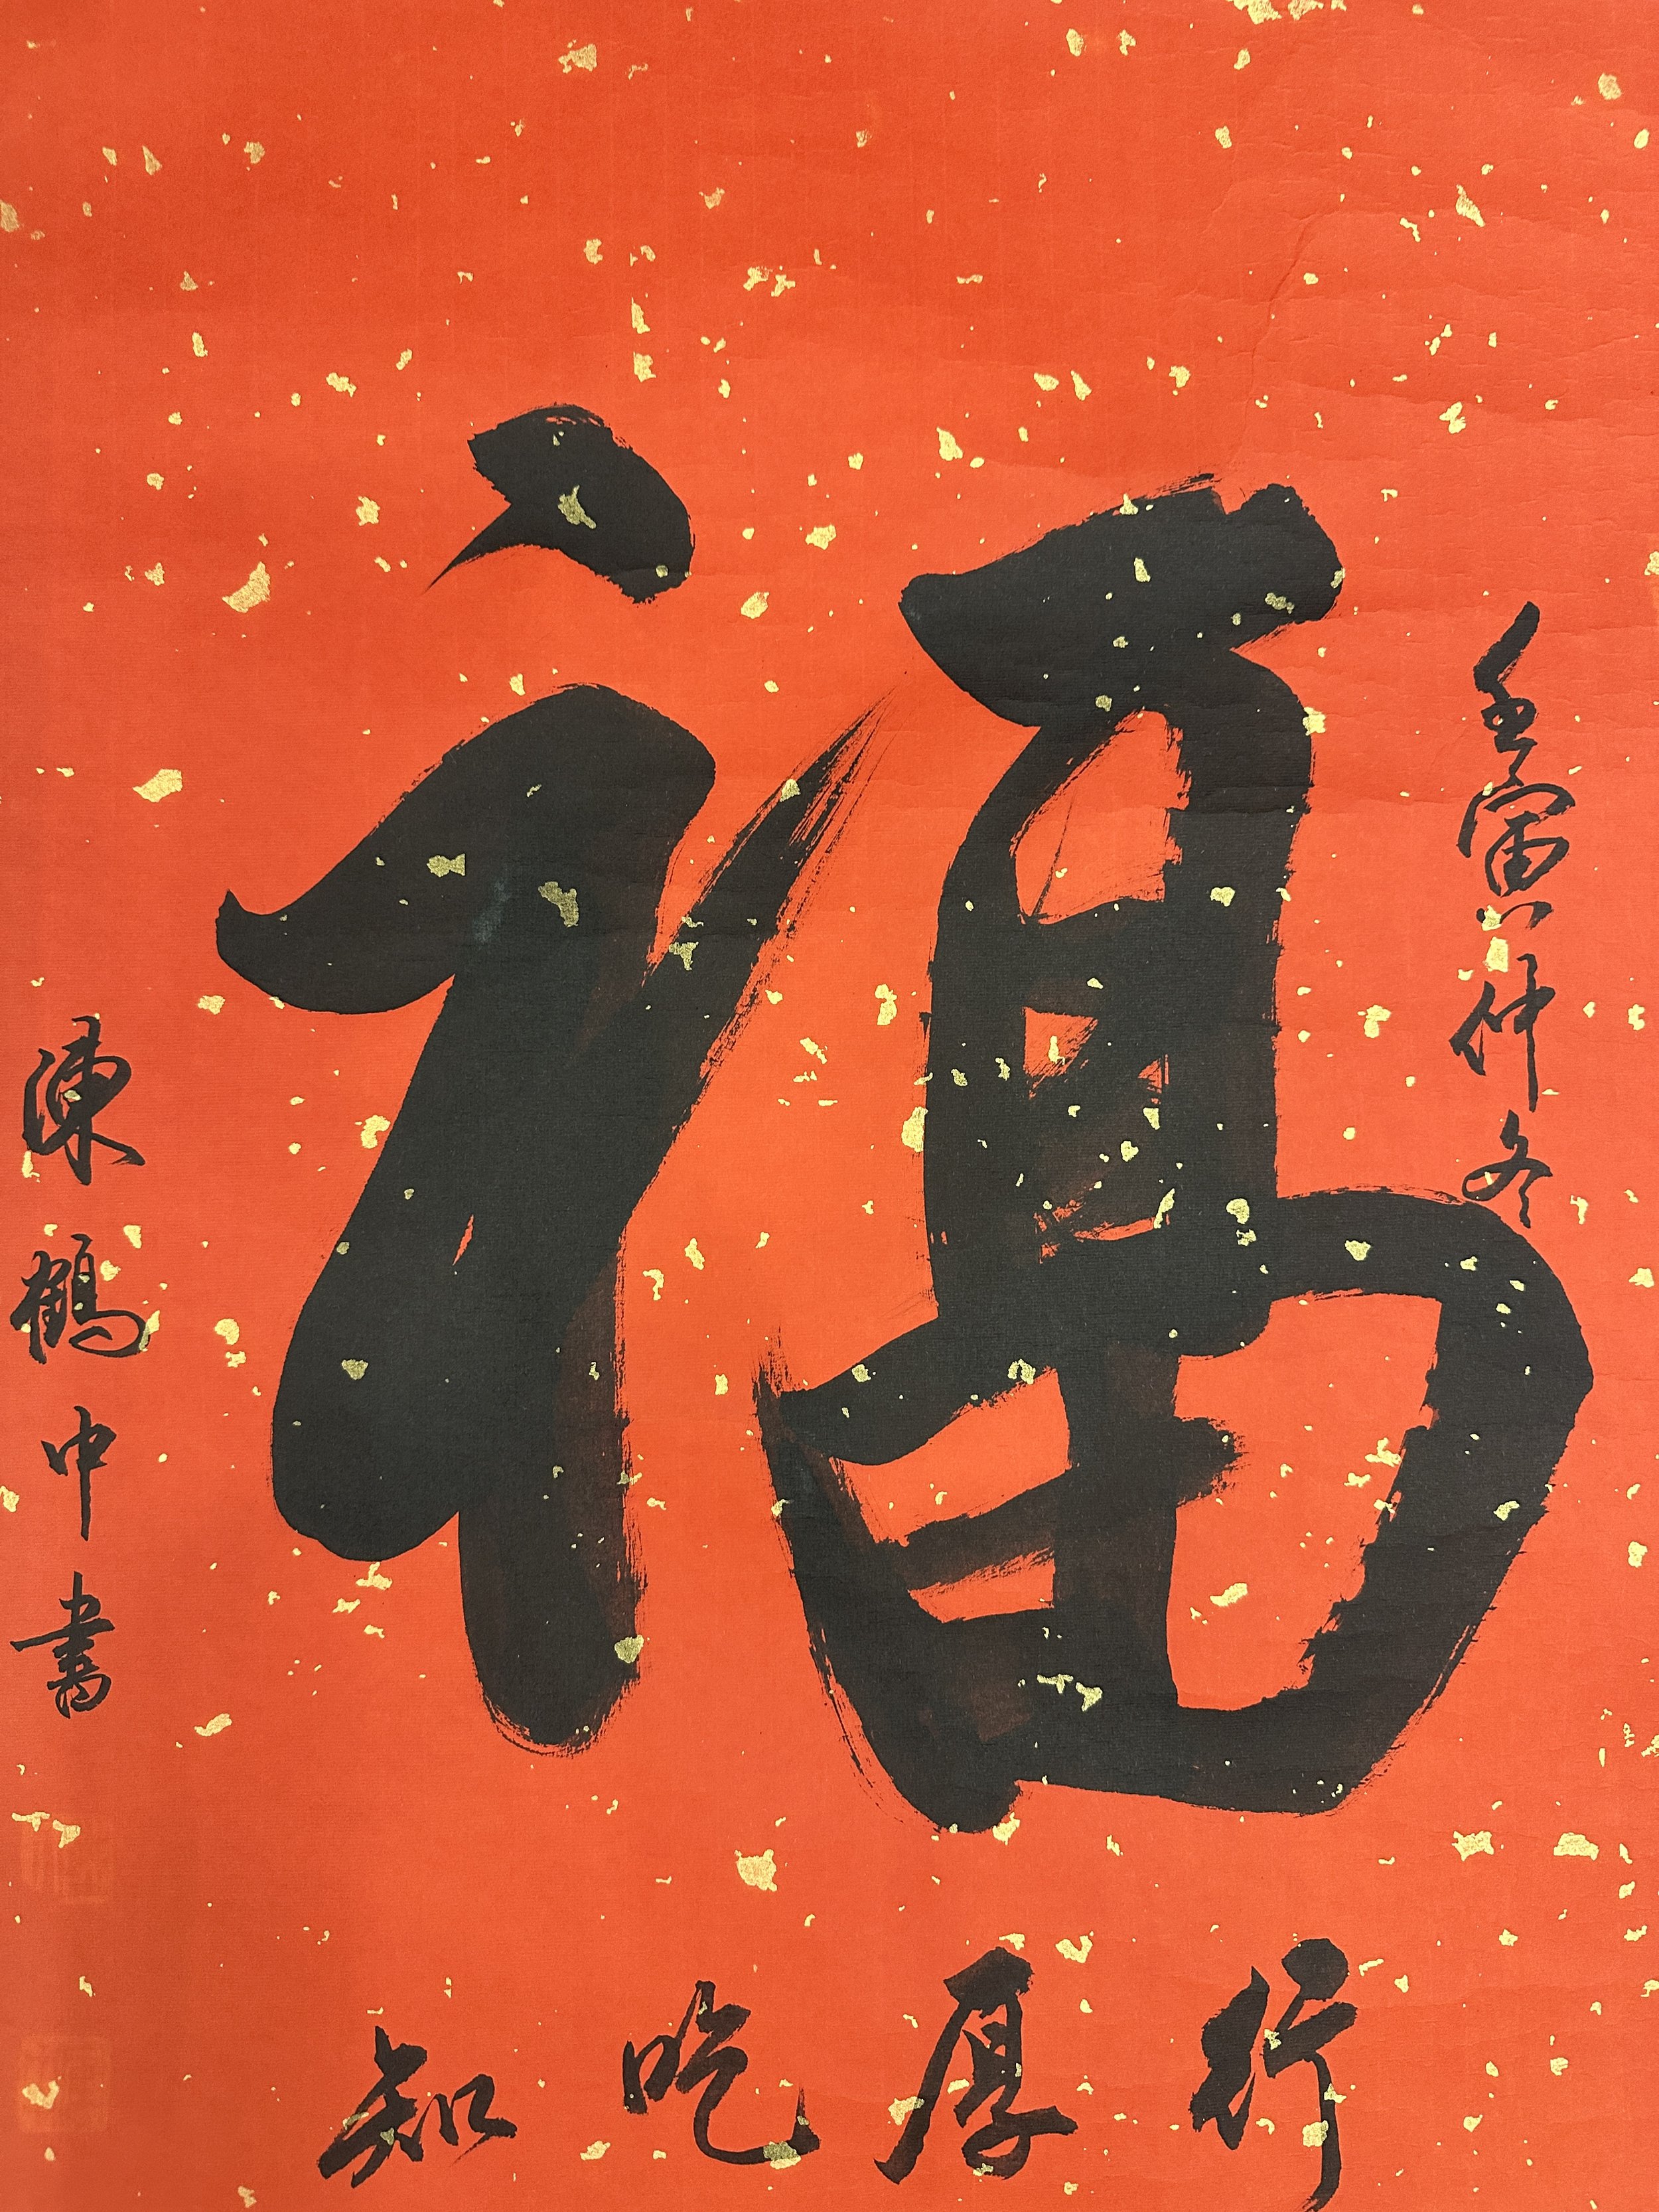 壬寅仲冬
福
行厚吃知
陳鶴中書